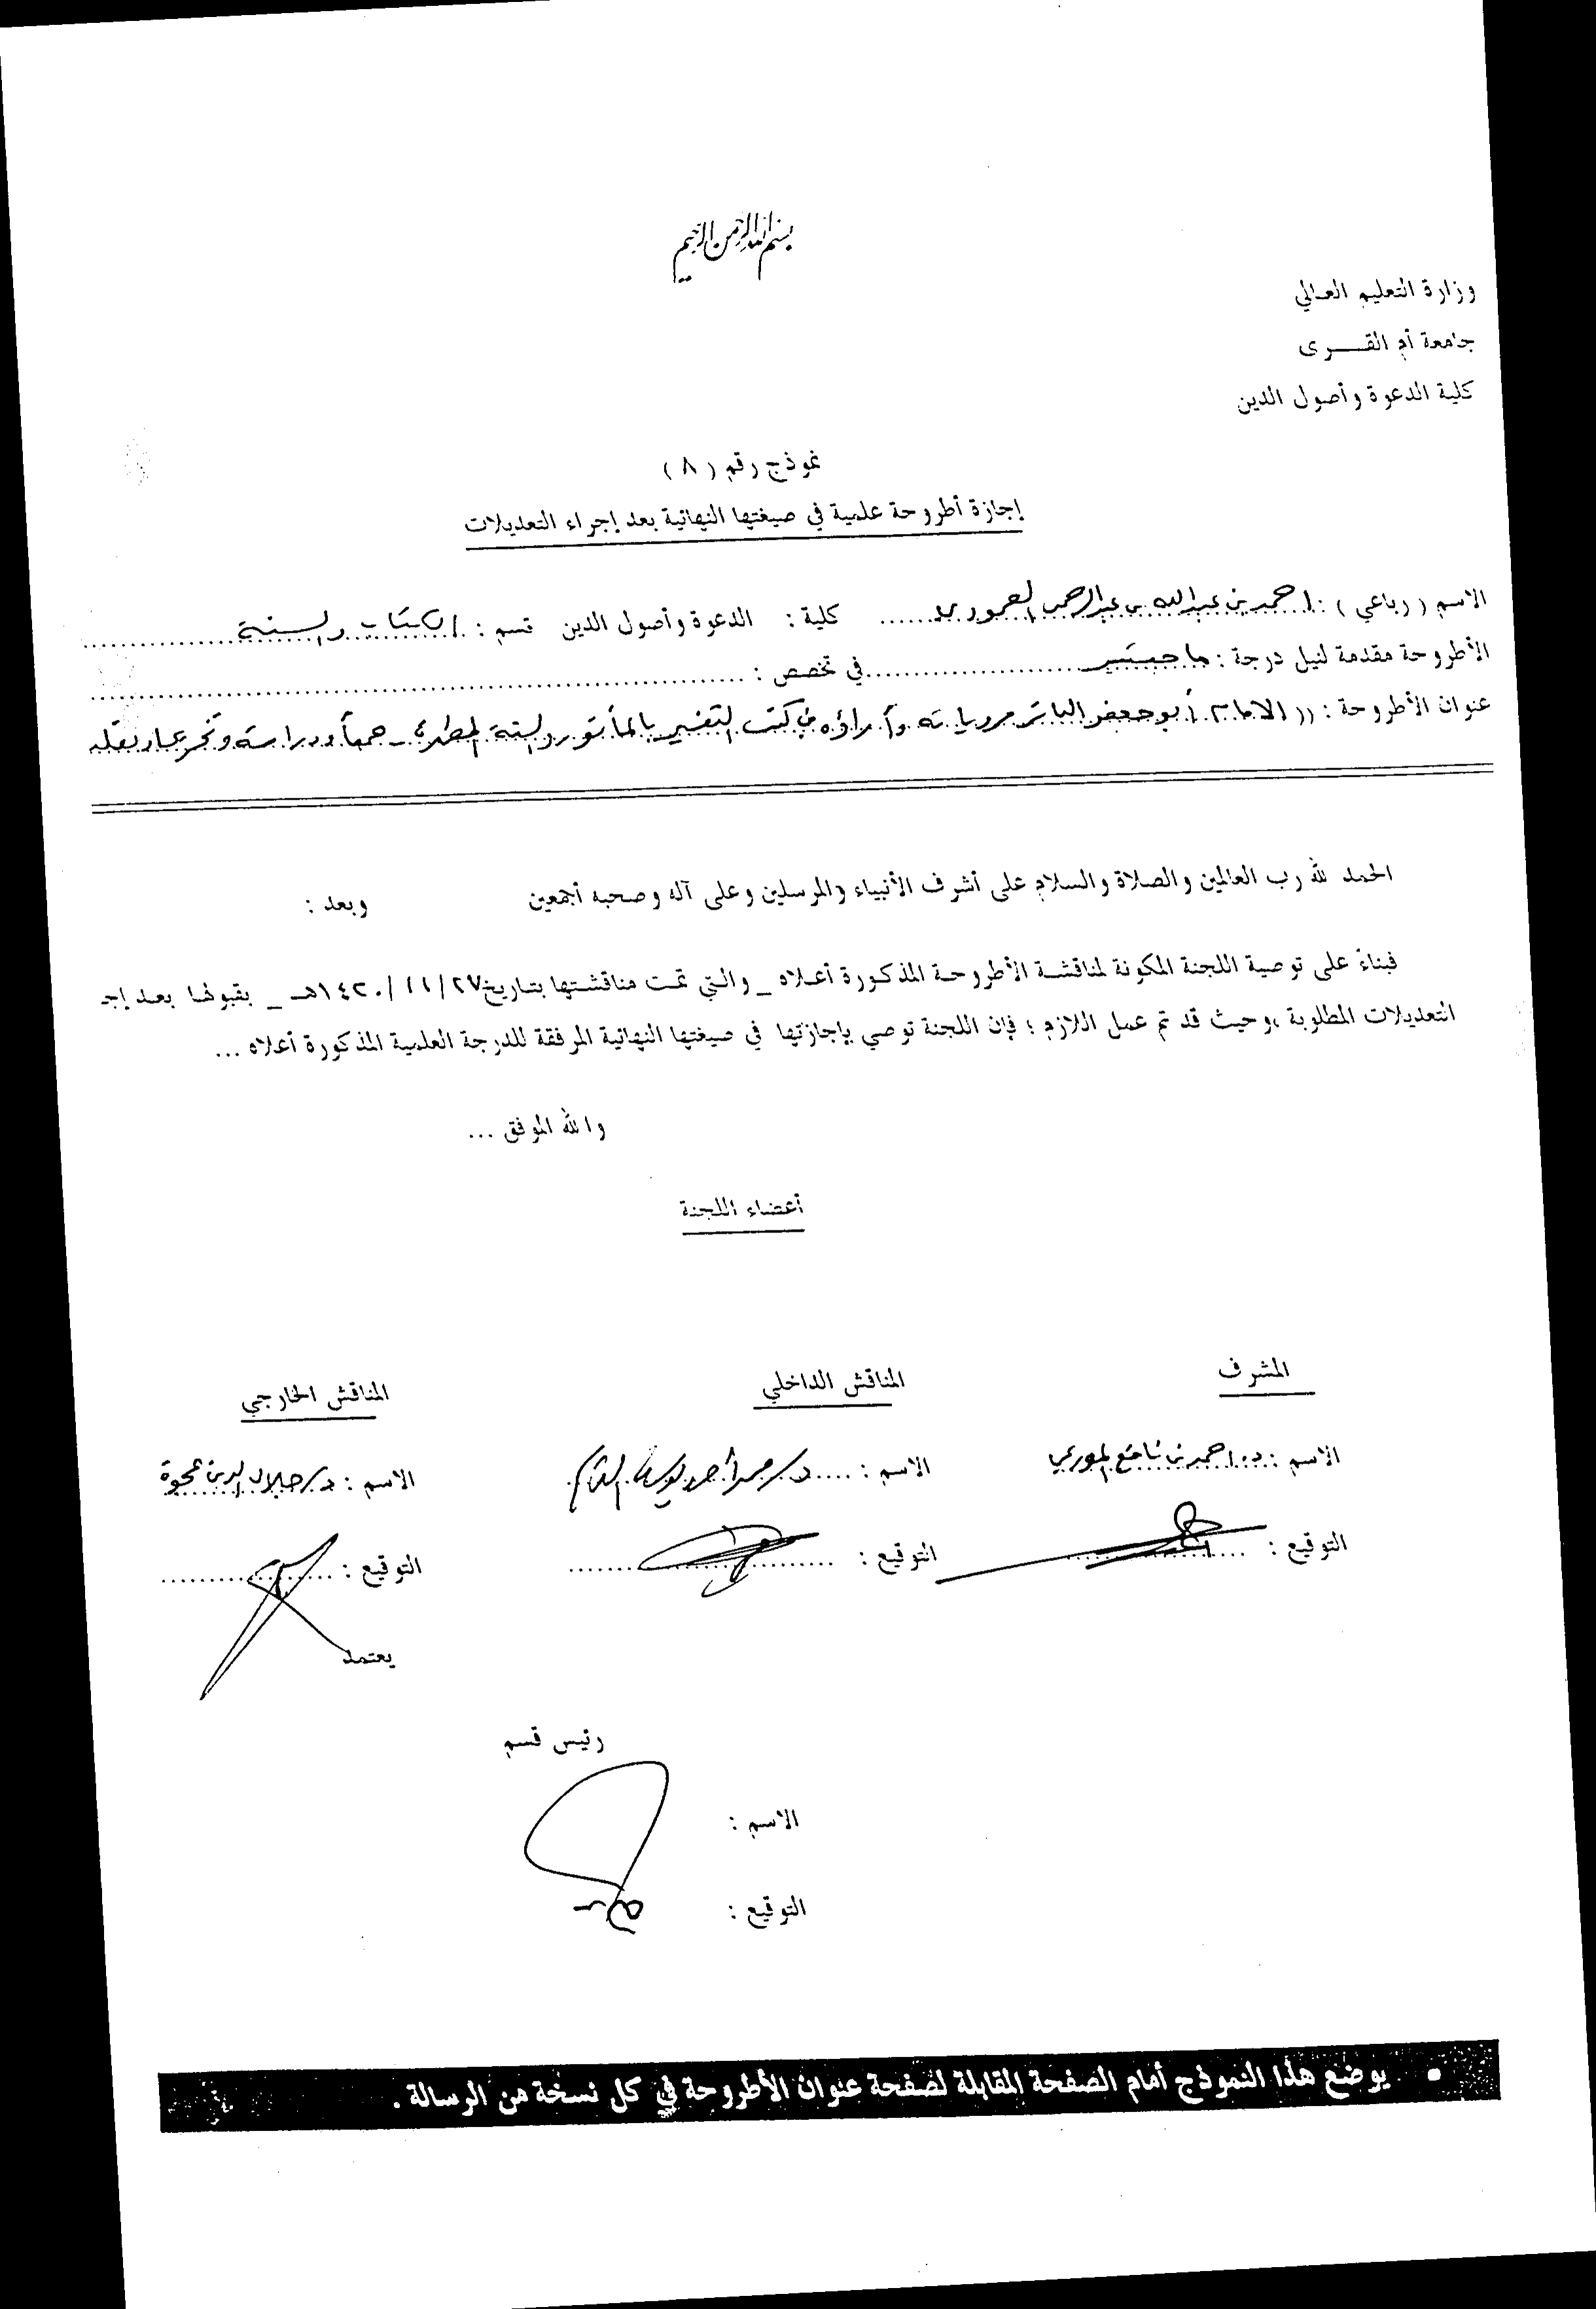 بسم الله الرحمن الرحيم
وزارة التعليم العالي
جامعة أم القـــرى
كلية الدعوة وأصول الدين
نموذج رقم ( ٨ )
إجازة أطروحة علمية في صيغتها النهائية بعد إجراء التعديلات
الاسم ( رباعي ) : احمد بن عبدالله بن عبدالرحمن العمودي كلية : الدعوة وأصول الدين قسم : الكتاب والسنة
الأطروحة مقدمة لنيل درجة : ماجستير في تخصص :
عنوان الأطروحة : (( الامام أبو جعفر الباقر مروياته وآراؤه في كتب التفسير بالمأثور والسنة المطهرة - جمعاً ودراسة
الحمد لله رب العالمين والصلاة والسلام على أشرف الأنبياء والمرسلين وعلى آله وصحبه أجمعين وبعد :
فبناءً على توصية اللجنة المكونة لمناقشة الأطروحة المذكورة أعلاه _ والتي تمت مناقشتها بتاريخ ٢٧/ ١١/ ١٤٢٠هـ _ بقبولها بعد إجـ
التعديلات المطلوبة ،وحيث قد تم عمل اللازم ؛ فإن اللجنة توصي بإجازتها في صيغتها النهائية المرفقة للدرجة العلمية المذكورة أعلاه ...
والله الموفق ...
أعضاء اللجنة
المشرف المناقش الداخلي المناقش الخارجي
الاسم : د. احمد بن نافع المورعي الاسم : د/ محمد أحمد يوسف القاسم الاسم : د/ جلال الدين عجوة
التوقيع : التوقيع : التوقيع :
يعتمد
رئيس قسم
الاسم :
التوقيع :
• يوضع هذا النموذج أمام الصفحة المقابلة لصفحة عنوان الأطروحة في كل نسخة من الرسالة .